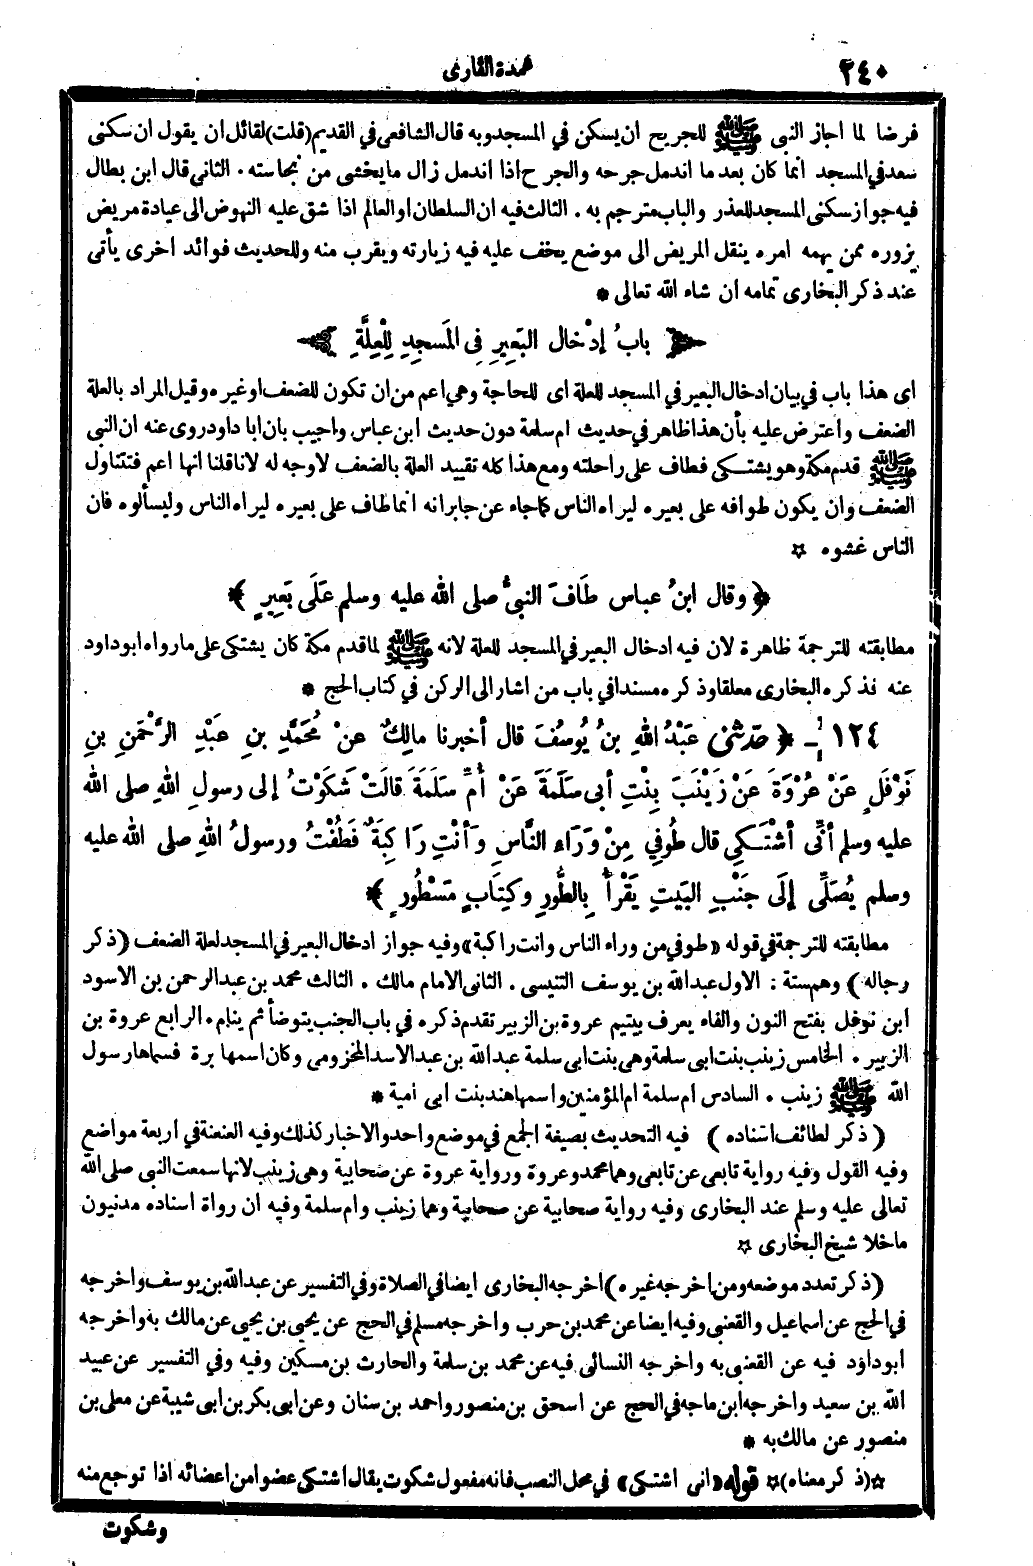 ٢٤٠
عمدة القارى
فرضا لما اجاز النبى ﷺ للجريح ان يسكن في المسجد وبه قال الشافعى في القديم (قلت) لقائل ان يقول ان سكنى
سعد في المسجد انما كان بعد ما اندمل جرحه والجرح اذا اندمل زال ما يخشى من نجاسته . الثانى قال ابن بطال
فيه جواز سكنى المسجد للعذر والباب مترجم به . الثالث فيه ان السلطان او العالم اذا شق عليه النهوض الى عيادة مريض
يزوره ممن يهمه امره ينقل المريض الى موضع يخف عليه فيه زيارته ويقرب منه وللحديث فوائد اخرى يأتى
عند ذكر البخارى تمامه ان شاء الله تعالى *
﴿ بابُ إِدْخال البَعِيرِ فِى المَسجِدِ لِلْعِلَّةِ ﴾
اى هذا باب في بيان ادخال البعير في المسجد للعلة اى للحاجة وهي اعم من ان تكون للضعف او غيره وقيل المراد بالعلة
الضعف واعترض عليه بأن هذا ظاهر في حديث ام سلمة دون حديث ابن عباس واجيب بان ابا داود روى عنه ان النبى
ﷺ قدم مكة وهو يشتكى فطاف على راحلته ومع هذا كله تقييد العلة بالضعف لا وجه له لانا قلنا انها اعم فتتناول
الضعف وان يكون طوافه على بعيره ليراه الناس كما جاء عن جابر انه انما طاف على بعيره ليراه الناس وليسألوه فان
الناس غشوه ☆
﴿ وقال ابنُ عباس طَافَ النبىُّ صلى الله عليه وسلم عَلَى بَعِيرٍ ﴾
مطابقته للترجمة ظاهرة لان فيه ادخال البعير في المسجد للعلة لانه ﷺ لما قدم مكة كان يشتكى على ما رواه ابو داود
عنه فذكره البخارى معلقا وذكره مسندا في باب من اشار الى الركن في كتاب الحج *
١٢٤ - ﴿ حدّثنى عَبْدُ اللهِ بنُ يُوسُفَ قال أخبرنا مالِكٌ عنْ مُحَمَّدِ بنِ عَبْدِ الرَّحْمنِ بنِ
نَوْفَلٍ عَنْ عُرْوَةَ عَنْ زَيْنَبَ بِنْتِ أبى سَلَمَةَ عَنْ أُمِّ سَلَمَةَ قالَتْ شَكَوْتُ إلى رسولِ اللهِ صلى الله
عليه وسلم أنِّى أشْتَكِى قال طُوفِي مِنْ وَرَاءِ النَّاسِ وَأنْتِ رَاكِبَةٌ فَطُفْتُ ورسولُ اللهِ صلى الله عليه
وسلم يُصَلِّى إلَى جَنْبِ البَيتِ يَقْرَأُ بِالطُّورِ وكِتَابٍ مَسْطُورٍ ﴾
مطابقته للترجمة في قوله «طوفي من وراء الناس وانت راكبة» وفيه جواز ادخال البعير في المسجد لعلة الضعف (ذكر
رجاله) وهم ستة : الاول عبد الله بن يوسف التنيسى . الثانى الامام مالك . الثالث محمد بن عبد الرحمن بن الاسود
ابن نوفل بفتح النون والفاء يعرف بيتيم عروة بن الزبير تقدم ذكره في باب الجنب يتوضأ ثم ينام . الرابع عروة بن
الزبير . الخامس زينب بنت ابى سلمة وهى بنت ابى سلمة عبد الله بن عبد الاسد المخزومى وكان اسمها برة فسماها رسول
الله ﷺ زينب . السادس ام سلمة ام المؤمنين واسمها هند بنت ابى امية *
( ذكر لطائف اسناده ) فيه التحديث بصيغة الجمع في موضع واحد والاخبار كذلك وفيه العنعنة في اربعة مواضع
وفيه القول وفيه رواية تابعى عن تابعى وهما محمد وعروة ورواية عروة عن صحابية وهى زينب لانها سمعت النبى صلى الله
تعالى عليه وسلم عند البخارى وفيه رواية صحابية عن صحابية وهما زينب وام سلمة وفيه ان رواة اسناده مدنيون
ما خلا شيخ البخارى ☆
(ذكر تعدد موضعه ومن اخرجه غيره) اخرجه البخارى ايضا في الصلاة وفي التفسير عن عبد الله بن يوسف واخرجه
في الحج عن اسماعيل والقعنبى وفيه ايضا عن محمد بن حرب واخرجه مسلم في الحج عن يحيى بن يحيى عن مالك به واخرجه
ابو داود فيه عن القعنبى به واخرجه النسائى فيه عن محمد بن سلمة والحارث بن مسكين وفيه وفي التفسير عن عبيد
الله بن سعيد واخرجه ابن ماجه في الحج عن اسحق بن منصور واحمد بن سنان وعن ابى بكر بن ابى شيبة عن معلى بن
منصور عن مالك به *
☆(ذكر معناه)☆ قوله «انى اشتكى» في محل النصب فانه مفعول شكوت يقال اشتكى عضوا من اعضائه اذا توجع منه
وشكوت